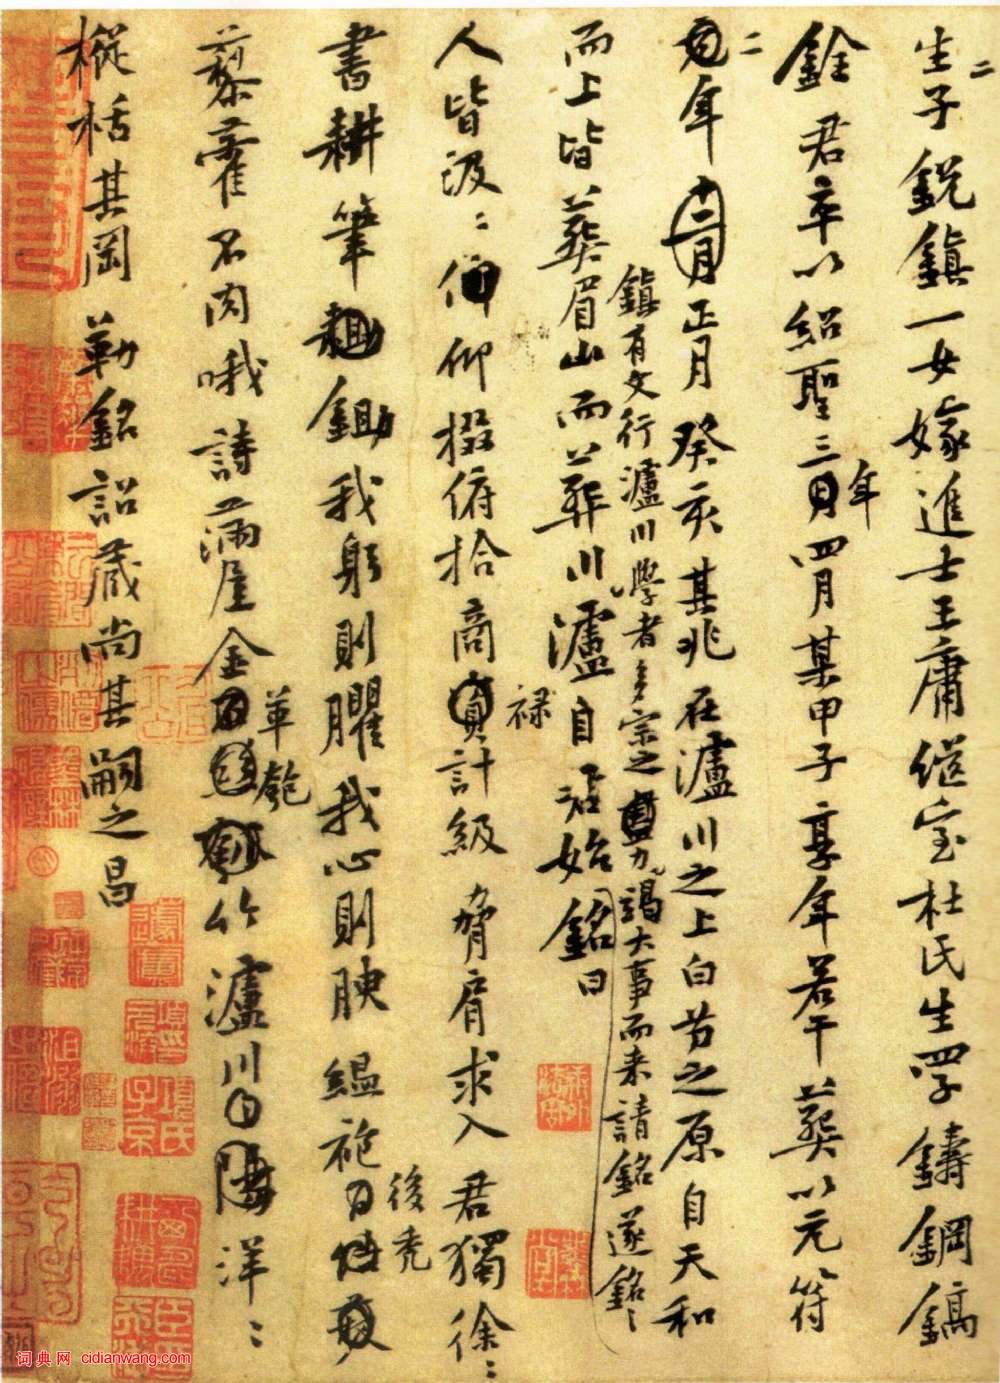 生二子鋭鎮一女嫁進士王庸继室杜氏生四子鑄鋼鎬
銓君卒以紹聖三年四月某甲子享年若干葬以元符
二年十二月正月癸亥其兆在瀘川之上白芀之原自天和
鎮有文行瀘川學者多宗之力謁大事而来請銘遂銘〻
而上皆葬眉山而葬川瀘自君始銘曰
人皆汲〻仰掇俯拾商禄計級脅肩求入君獨徐〻
書耕筆鋤我躬則臞我心則腴緼袍後禿
藜藿不肉哦詩滿屋金革匏竹瀘川洋〻
樅栝其岡勒銘詔葳尚其嗣之昌
词典网 cidianwang.com